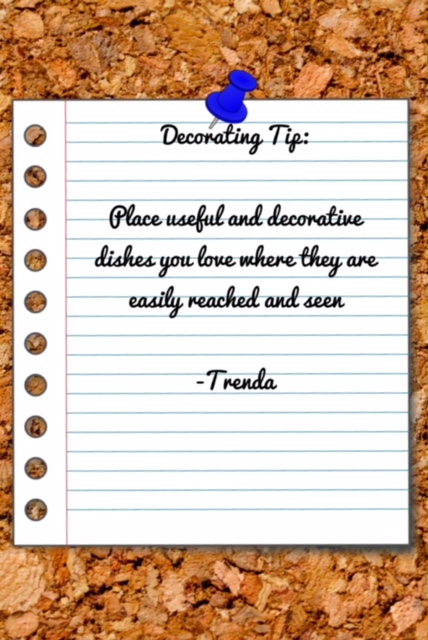 Decorating Tip:
Place useful and decorative
dishes you love where they are
easily reached and seen
-Trenda